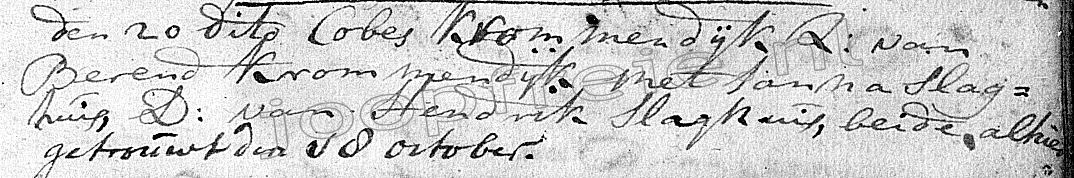 den 20 dito Cobes Krommendijk Z: van
Berend Krommendijk met Janna Slag=
huis, D: van Hendrik Slaghuis, beide alhier
getrouwt den 18 october.